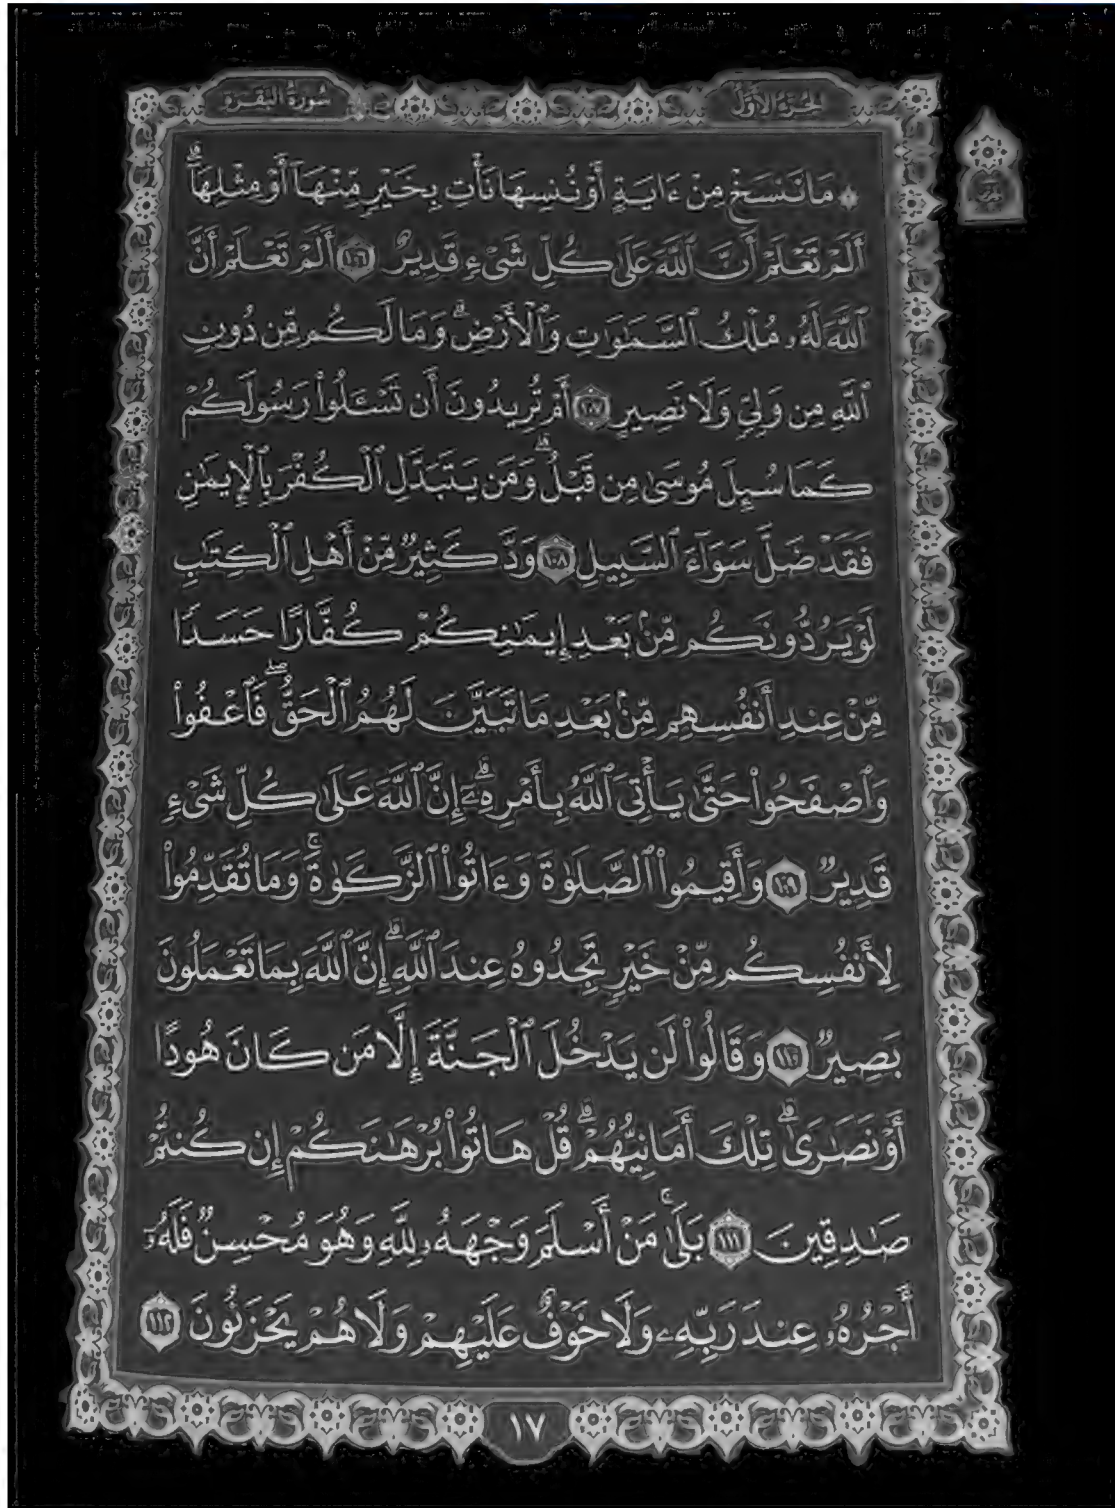 الجزء الأول
سورة البقرة
۞ مَا نَنسَخْ مِنْ ءَايَةٍ أَوْ نُنسِهَا نَأْتِ بِخَيْرٍ مِّنْهَآ أَوْ مِثْلِهَآۗ
أَلَمْ تَعْلَمْ أَنَّ ٱللَّهَ عَلَىٰ كُلِّ شَىْءٍ قَدِيرٌ ١٠٦ أَلَمْ تَعْلَمْ أَنَّ
ٱللَّهَ لَهُۥ مُلْكُ ٱلسَّمَٰوَٰتِ وَٱلْأَرْضِۗ وَمَا لَكُم مِّن دُونِ
ٱللَّهِ مِن وَلِىٍّ وَلَا نَصِيرٍ ١٠٧ أَمْ تُرِيدُونَ أَن تَسْـَٔلُوا۟ رَسُولَكُمْ
كَمَا سُئِلَ مُوسَىٰ مِن قَبْلُۗ وَمَن يَتَبَدَّلِ ٱلْكُفْرَ بِٱلْإِيمَٰنِ
فَقَدْ ضَلَّ سَوَآءَ ٱلسَّبِيلِ ١٠٨ وَدَّ كَثِيرٌ مِّنْ أَهْلِ ٱلْكِتَٰبِ
لَوْ يَرُدُّونَكُم مِّنۢ بَعْدِ إِيمَٰنِكُمْ كُفَّارًا حَسَدًا
مِّنْ عِندِ أَنفُسِهِم مِّنۢ بَعْدِ مَا تَبَيَّنَ لَهُمُ ٱلْحَقُّۖ فَٱعْفُوا۟
وَٱصْفَحُوا۟ حَتَّىٰ يَأْتِىَ ٱللَّهُ بِأَمْرِهِۦٓۗ إِنَّ ٱللَّهَ عَلَىٰ كُلِّ شَىْءٍ
قَدِيرٌ ١٠٩ وَأَقِيمُوا۟ ٱلصَّلَوٰةَ وَءَاتُوا۟ ٱلزَّكَوٰةَۚ وَمَا تُقَدِّمُوا۟
لِأَنفُسِكُم مِّنْ خَيْرٍ تَجِدُوهُ عِندَ ٱللَّهِۗ إِنَّ ٱللَّهَ بِمَا تَعْمَلُونَ
بَصِيرٌ ١١٠ وَقَالُوا۟ لَن يَدْخُلَ ٱلْجَنَّةَ إِلَّا مَن كَانَ هُودًا
أَوْ نَصَٰرَىٰۗ تِلْكَ أَمَانِيُّهُمْۗ قُلْ هَاتُوا۟ بُرْهَٰنَكُمْ إِن كُنتُمْ
صَٰدِقِينَ ١١١ بَلَىٰۚ مَنْ أَسْلَمَ وَجْهَهُۥ لِلَّهِ وَهُوَ مُحْسِنٌ فَلَهُۥٓ
أَجْرُهُۥ عِندَ رَبِّهِۦ وَلَا خَوْفٌ عَلَيْهِمْ وَلَا هُمْ يَحْزَنُونَ ١١٢
١٧